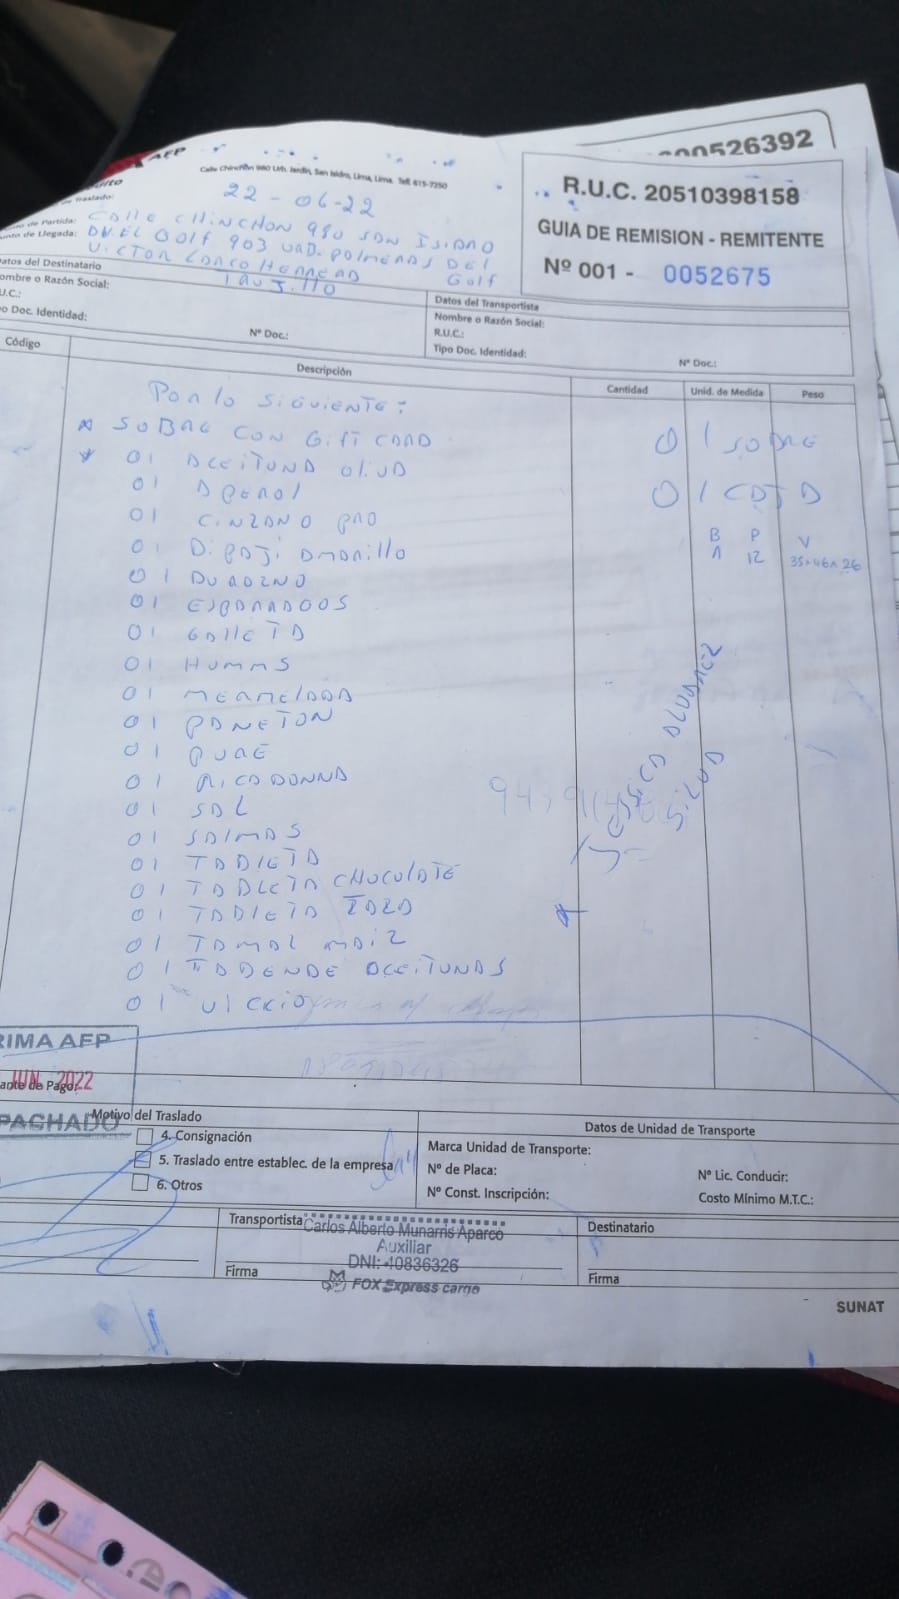 00526392
AFP
Calle Chinchón 980 Urb. Jardín, San Isidro, Lima, Lima. Telf. 615-7250
R.U.C. 20510398158
GUIA DE REMISION - REMITENTE
Nº 001 - 0052675
de Traslado: 22-06-22
de Partida: CALLE CHINCHON 980 SAN ISIDRO
nto de Llegada: AV. EL GOLF 903 URB. PALMERAS DEL
GOLF
VICTOR LARCO HERRERA
TRUJILLO
atos del Destinatario
ombre o Razón Social:
U.C.:
o Doc. Identidad:
Nº Doc.:
Datos del Transportista
Nombre o Razón Social:
R.U.C.:
Tipo Doc. Identidad:
Nº Doc.:
Código
Descripción
Cantidad
Unid. de Medida
Peso
POR LO SIGUIENTE:
* SOBRE CON GIFT CARD 01 SOBRE
* 01 ACEITUNA OLIVA
01 APEROL 01 CAJA
01 CINZANO PRO
B P V
1 12 35x46x26
01 DIP AJI AMARILLO
01 DURAZNO
01 ESPARRAGOS
01 GALLETA
01 HUMMS
01 MERMELADA
01 PANETON
01 PURE
01 RICADONNA
01 SAL
01 SALMAS
01 TABLETA
01 TABLETA CHOCOLATE
01 TABLETA
01 TAMAL MAIZ
01 TAPENADE ACEITUNAS
01
JESSICA ALVAREZ
SILVA
RIMA AFP
JUN 2022
ante de Pago:
PACHADO
Motivo del Traslado
4. Consignación
5. Traslado entre establec. de la empresa
6. Otros
Datos de Unidad de Transporte
Marca Unidad de Transporte:
Nº de Placa:
Nº Lic. Conducir:
Nº Const. Inscripción:
Costo Mínimo M.T.C.:
Transportista
Carlos Alberto Munarris Aparco
Auxiliar
DNI: 40836326
FOX Express cargo
Firma
Destinatario
Firma
SUNAT